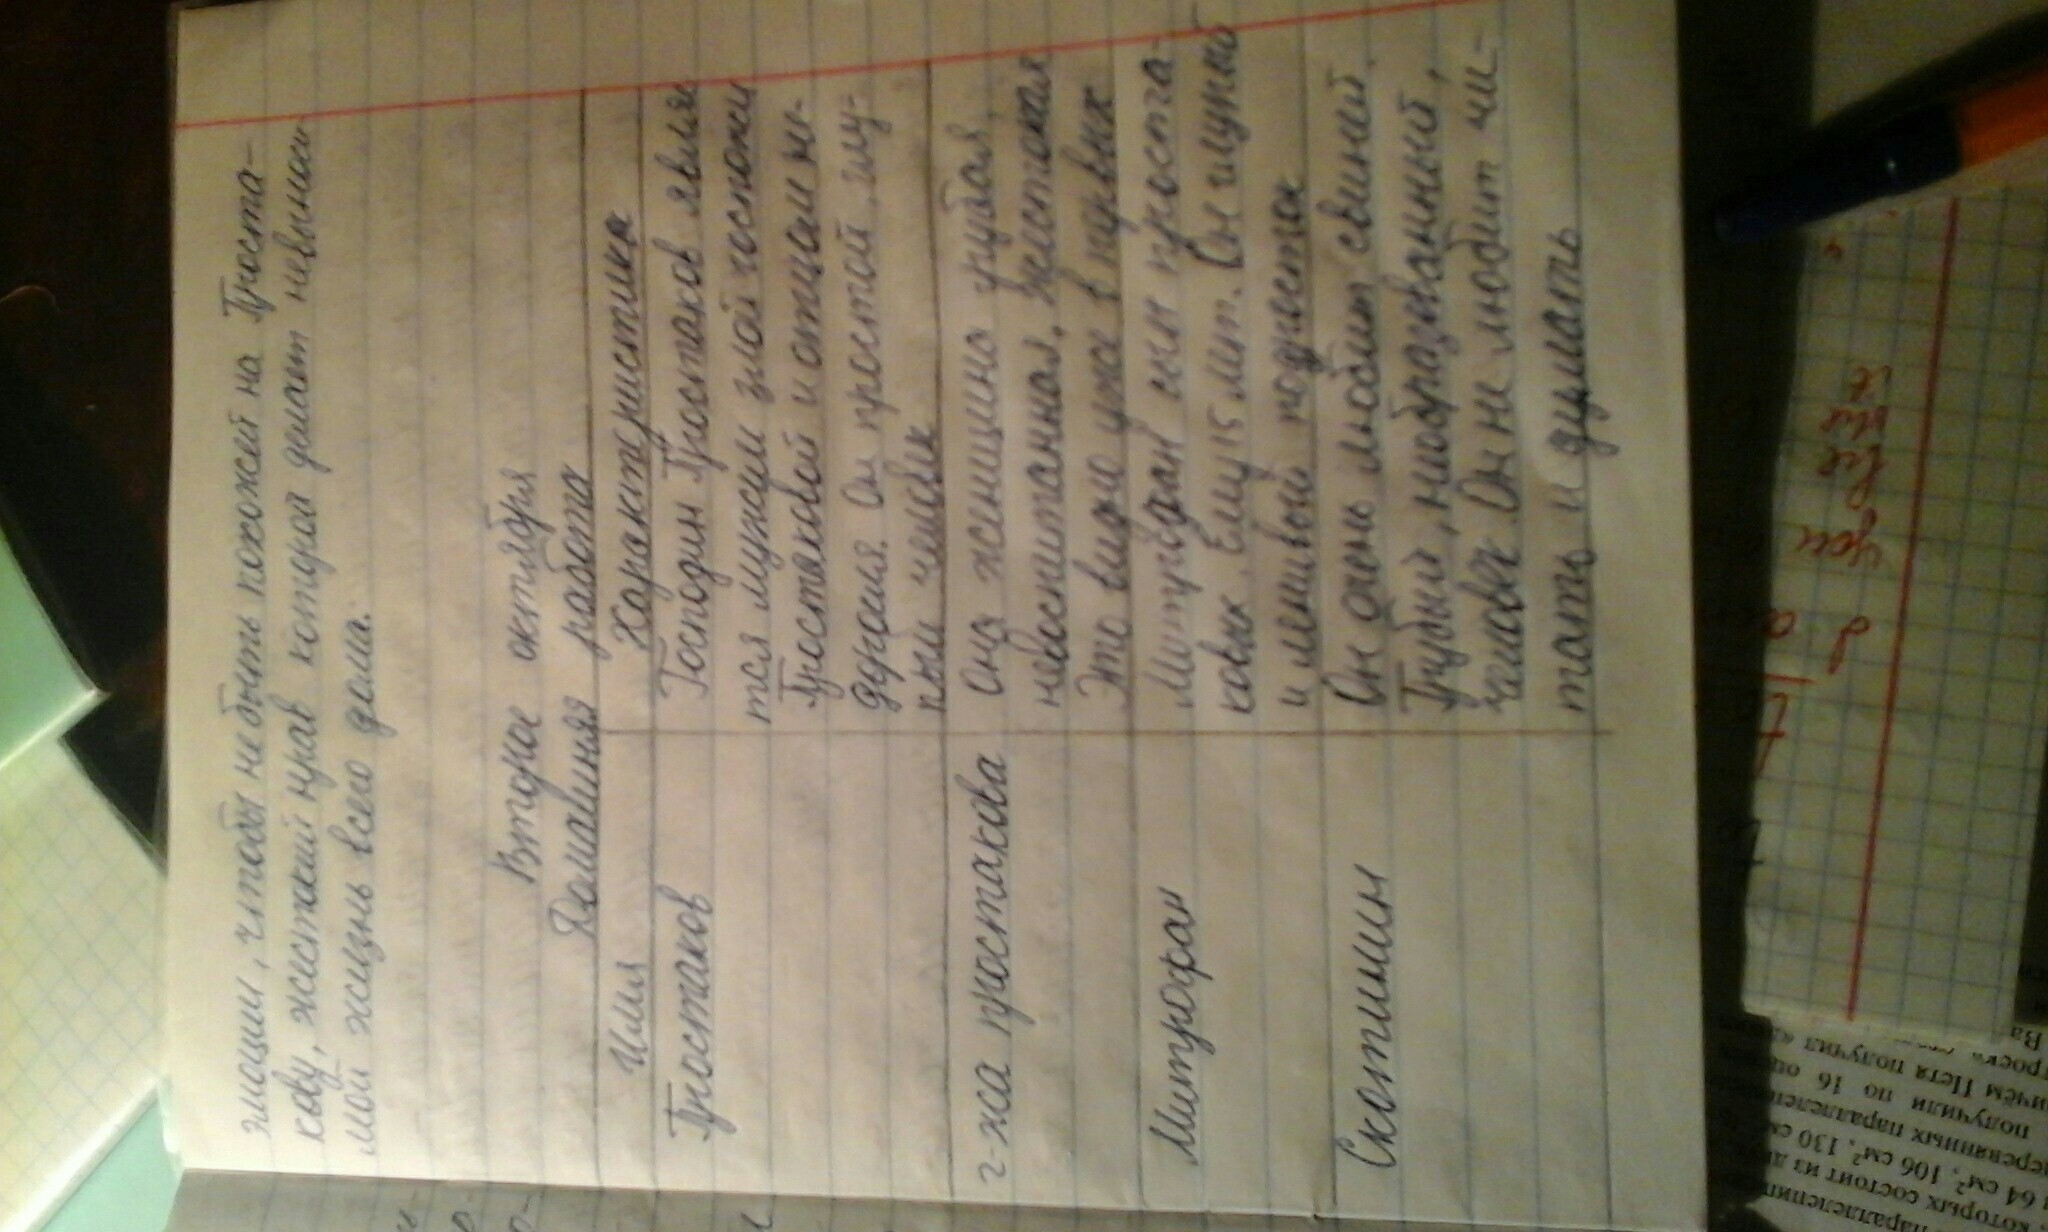 эмоции, чтобы не быть похожей на Проста-
кову, жестокий нрав которой делает невыноси-
мой жизнь всего дома.
Второе октября
Домашняя работа
Имя Характеристика
Простаков Господин Простаков являе
тся мужем злой госпожи
Простаковой и отцом не-
доросля. Он простой, глу-
пый человек
г-жа простакова Она женщина грубая,
невоспитанная, жестокая
Это видно уже в первых
Митрофан Митрофан сын простa-
ковых. Ему 15 лет. Он глупый
и ленивый подросток
Скотинин Он очень любит свиней.
Грубый, необразованный,
человек. Он не любит чи-
тать и думать